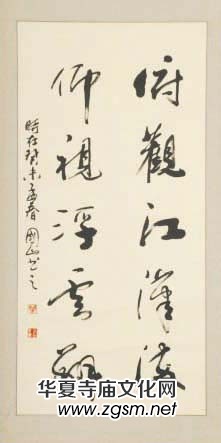 俯觀江漢流
仰視浮雲翔
時在癸未孟春國
华夏寺庙文化网
www.zgsm.net